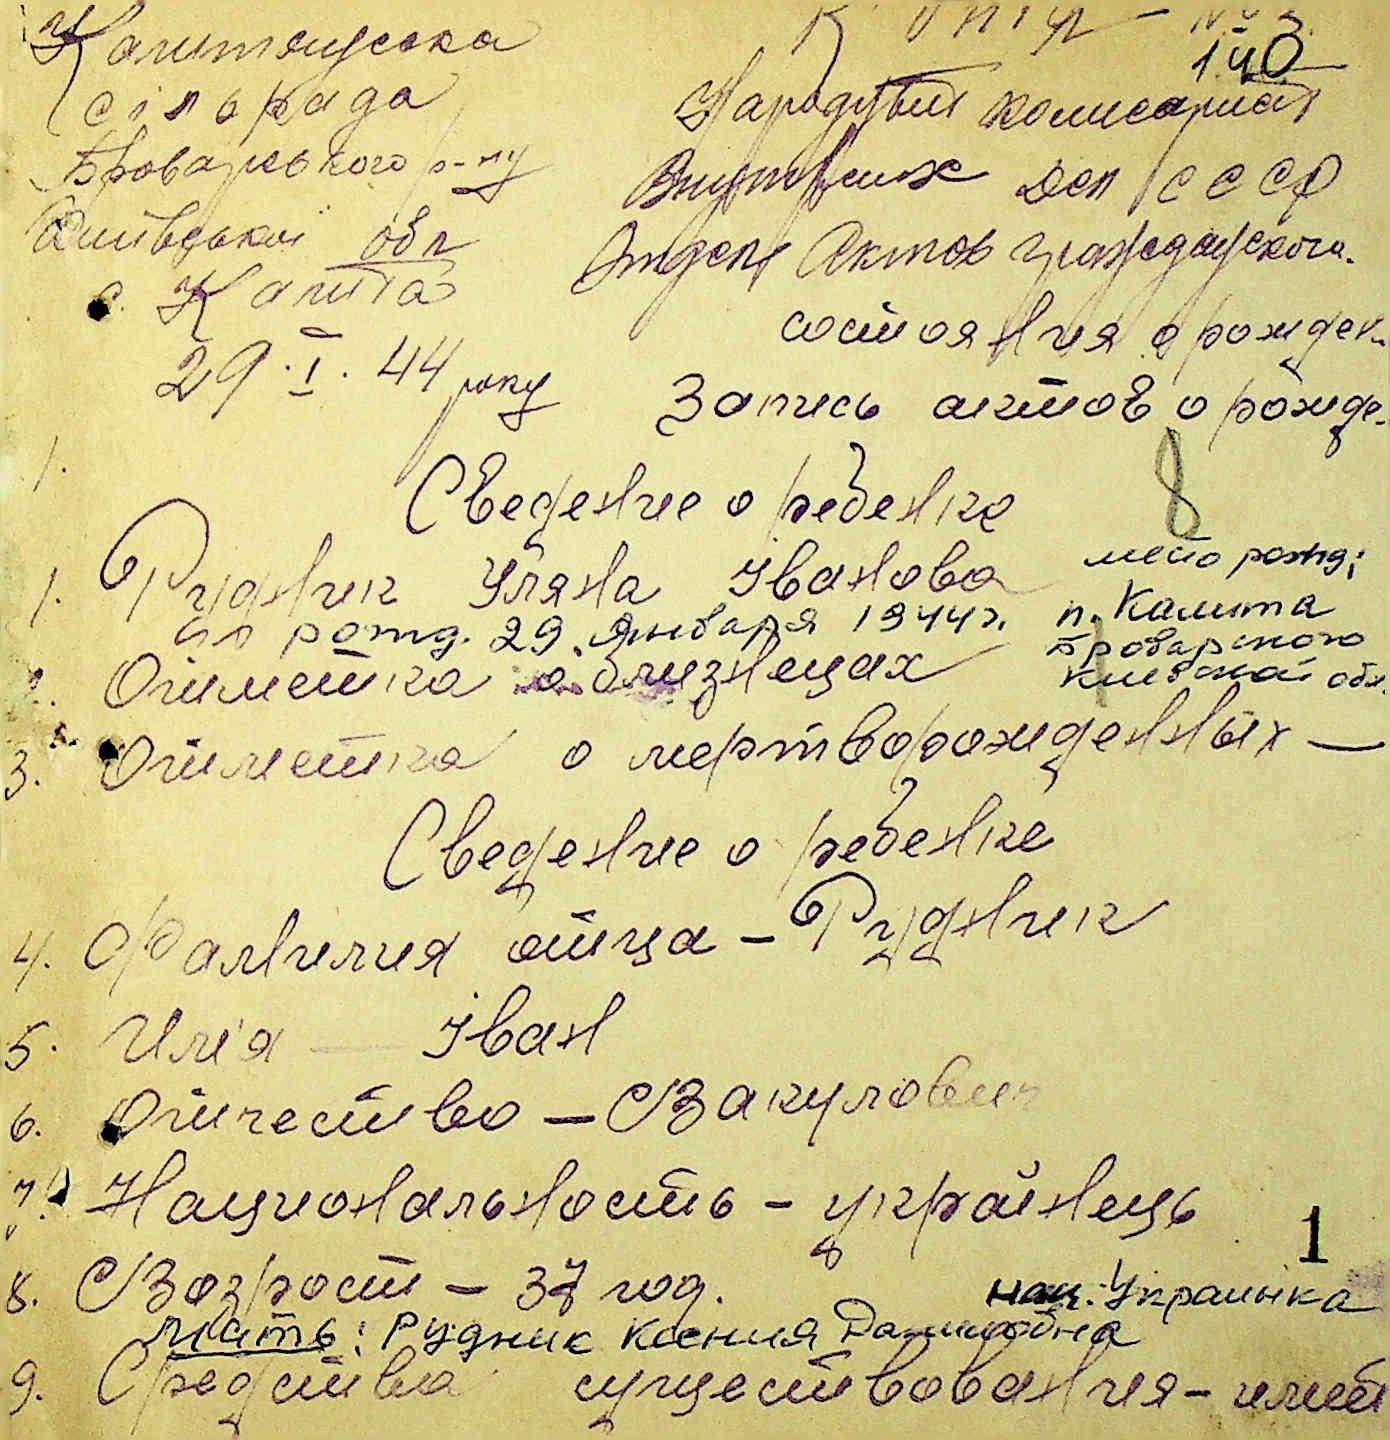 Калитянська
сільрада
Броварського р-ну
Київської обл
с. Калита
29.I.44 року
Копія
140
Народный комисариат
Внутрених дел СССР
Отдел Актов гражданского
состояния о рожден.
Запись актов о рожде.
8
1.
Сведение о ребенке
1. Рудник Уляна Іванова
рожд. 29 января 1944 г.
место рожд:
п. Калита
Броварского
Киевской обл.
2. Отметка о близнецах
3. Отметка о мертворожденных —
Сведение о ребенке
4. Фамилия отца – Рудник
5. Им'я — Іван
6. Отчество – Вакулович
7. Национальность – українець
1
8. Возрост – 37 год.
нац. Украинка
Мать: Рудник Ксения Даниловна
9. Средства существования – имеет